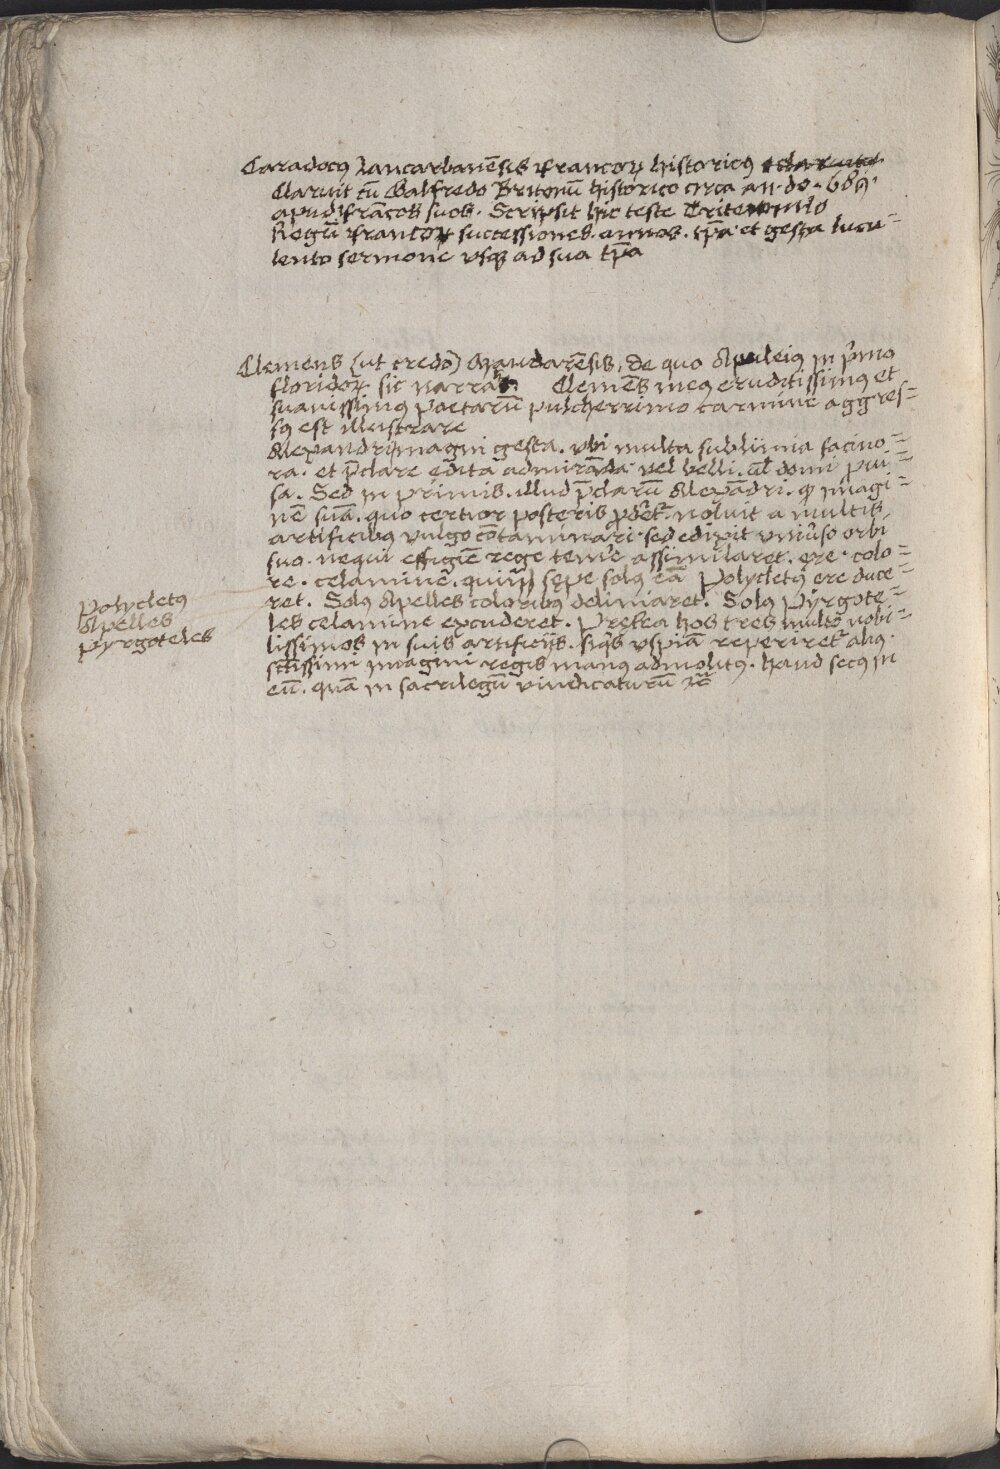 Caradocꝰ Lancarbanēsis Francoꝝ historicꝰ
Claruit cū Galfredo Britonū historico circa an. do.
apud Francos suos. Scripsit hic teste Tritemio
Regū Francoꝝ successiones. annos. tp̄a et gesta lucu=
lento sermone vsqꝫ ad sua tp̄a
Clemens (ut credo) de quo Apuleiꝰ in p̄mo
floridoꝝ sic narrat. Clemēs meꝰ eruditissimꝰ et
suauissimꝰ poetarū pulcherrimo carmine aggres=
sꝰ est illustrare
Alexandri magni gesta. vbi multa sublimia facino=
ra. et p̄clare edita admirāda. vel belli. ul̄ domi
sa. Sed in primis. illud p̄clarū Alexādri. qꝫ imagi=
nē suā. quo certior posteris noluit a multis
artificibꝰ vulgo cōtaminari. sed edixit vniūso orbi
suo. nequi effigiē rege temē assimilaret. ere. colo=
re. celamine. quin sepe solꝰ eā Polycletꝰ ere duce=
ret. Solꝰ Apelles coloribꝰ deliniaret. Solꝰ Pyrgote=
les celamine excuderet. Preter hos tres multo nobi=
lissimos in suis artificijs. siqs vspiā reperiret aliꝰ.
sctissimi imagini regis manꝰ admolitꝰ. haud secꝰ in
eū. quā in sacrilegū vindicaturū ꝛc̄
Polycletꝰ
Apelles
Pyrgoteles